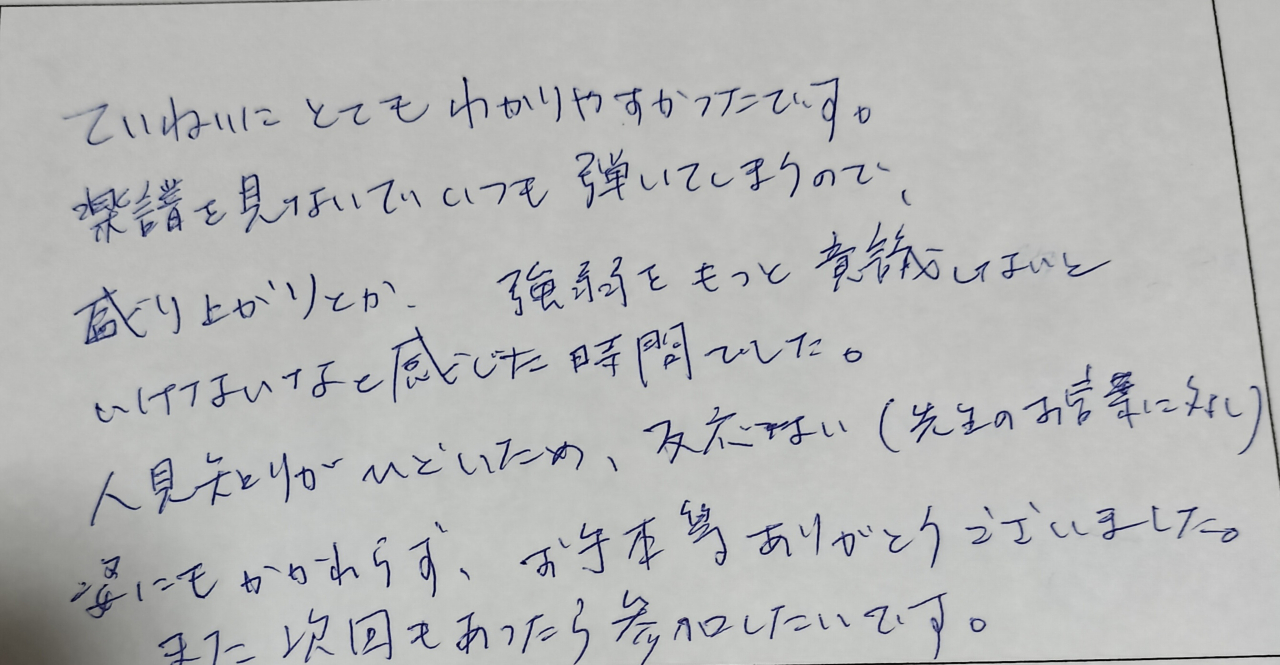 ていねいにとてもわかりやすかったです。
楽譜を見ないでいつも弾いてしまうので、
盛り上がりとか、強弱をもっと意識しないと
いけないなと感じた時間でした。
人見知りがひどいため、反応ない(先生のお言葉に対し)
姿にもかかわらず、お手本等ありがとうございました。
また次回もあったら参加したいです。